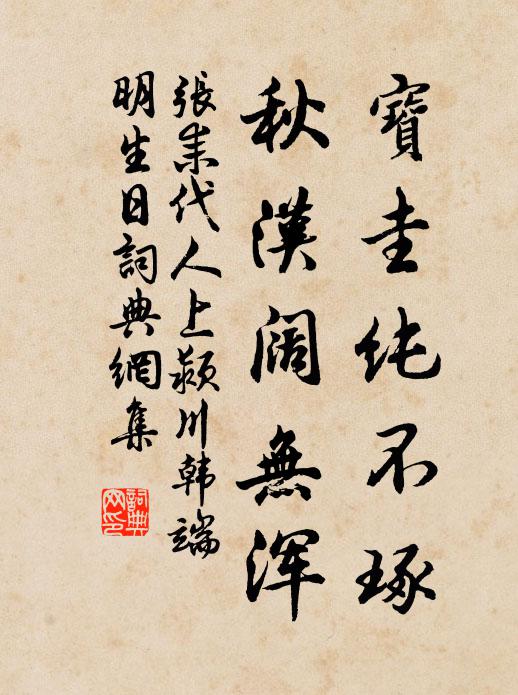 寶圭純不琢
秋漢闊無渾
張耒代人上潁川韩端
明生日詞典網集
詞典
网印